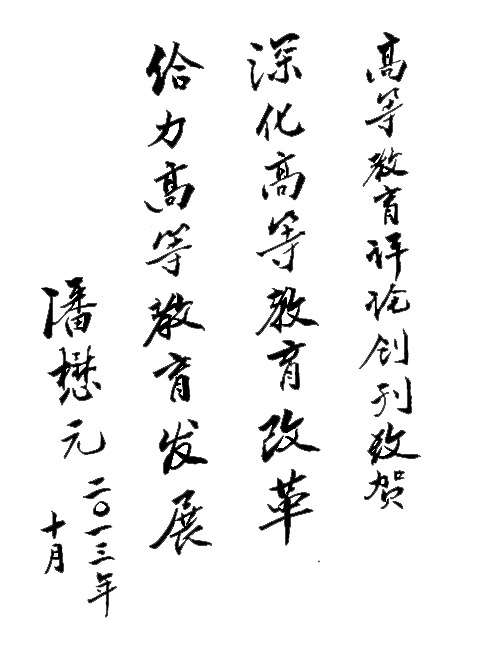 高等教育评论创刊致贺
深化高等教育改革
给力高等教育发展
潘懋元
二〇一三年
十月